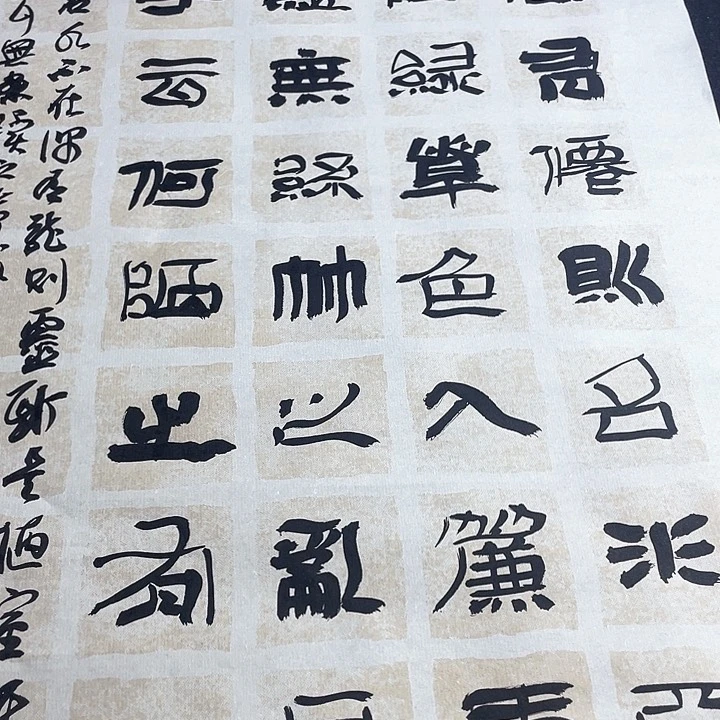 有僊則名水
緑草色入簾
無絲竹之亂
云何陋之有
名水不在深有龍則靈斯是陋室